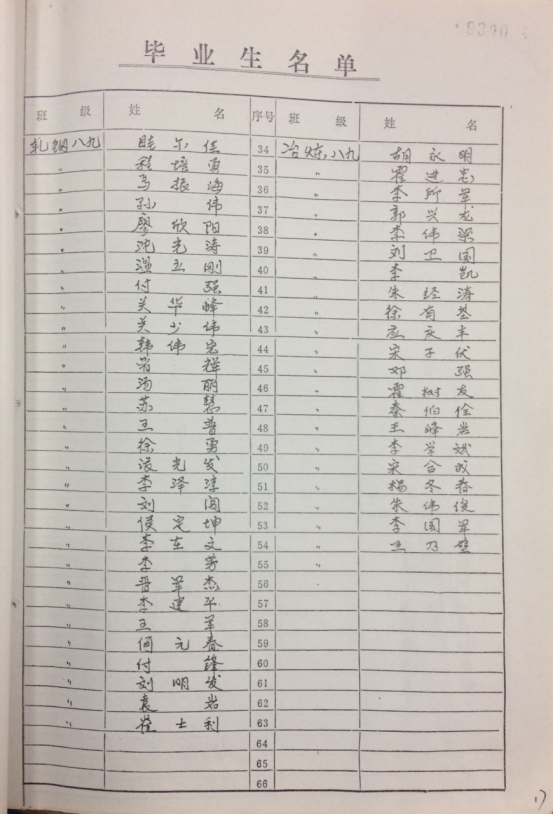 毕业生名单
班级 姓名 序号 班级 姓名
轧钢八九 尔佳 34 冶炼八九 胡永明
〃 程培勇 35 〃 翟进
〃 马振海 36 〃 李所军
〃 孙伟 37 〃 郭兴龙
〃 廖欣阳 38 〃 李伟梁
〃 沈光涛 39 〃 刘卫国
〃 温玉刚 40 〃 李凯
〃 付强 41 〃 朱经涛
〃 关华峰 42 〃 徐有基
〃 关少伟 43 〃 庆丰
〃 韩伟宏 44 〃 宋子伏
〃 群 45 〃 邓强
〃 汤丽 46 〃 霍树友
〃 苏慧 47 〃 秦伯俭
〃 王普 48 〃 王峰岩
〃 徐勇 49 〃 李学斌
〃 凌光发 50 〃 宋合成
〃 李泽 51 〃 杨冬春
〃 刘闯 52 〃 朱伟俊
〃 侯定坤 53 〃 李国军
〃 李在文 54 〃 王乃
〃 李芳 55 〃
〃 晋军杰 56
〃 李建平 57
〃 王军 58
〃 何元春 59
〃 付锋 60
〃 刘明发 61
〃 袁岩 62
〃 崔士利 63
64
65
66
17